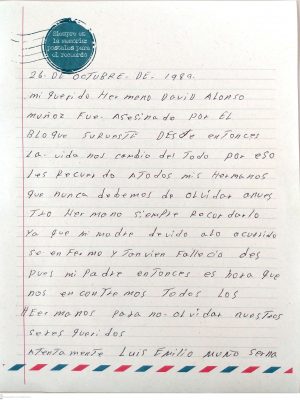 Siempre en
la memoria:
postales para
el recuerdo
26. DE OCTUBRE. DE. 1989.
mi querido Hermano David Alonso
muñoz fue. Asesinado por EL
BLoque SUROESTE DESde entonces
La vida nos cambio del Todo por eso
les Recuerdo A Todos mis Hermanos
que nunca debemos de olvidar anues
TRO Hermano Siempre Recordarlo
Ya que mi madre devido alo ocurrido
se enfermo y Tanvien Fallecio des
pues mi Padre entonces es hora que
nos encontremos Todos Los
Hermanos para no. olvidar nuestros
seres queridos
Atentamente Luis Emilio muño Serna